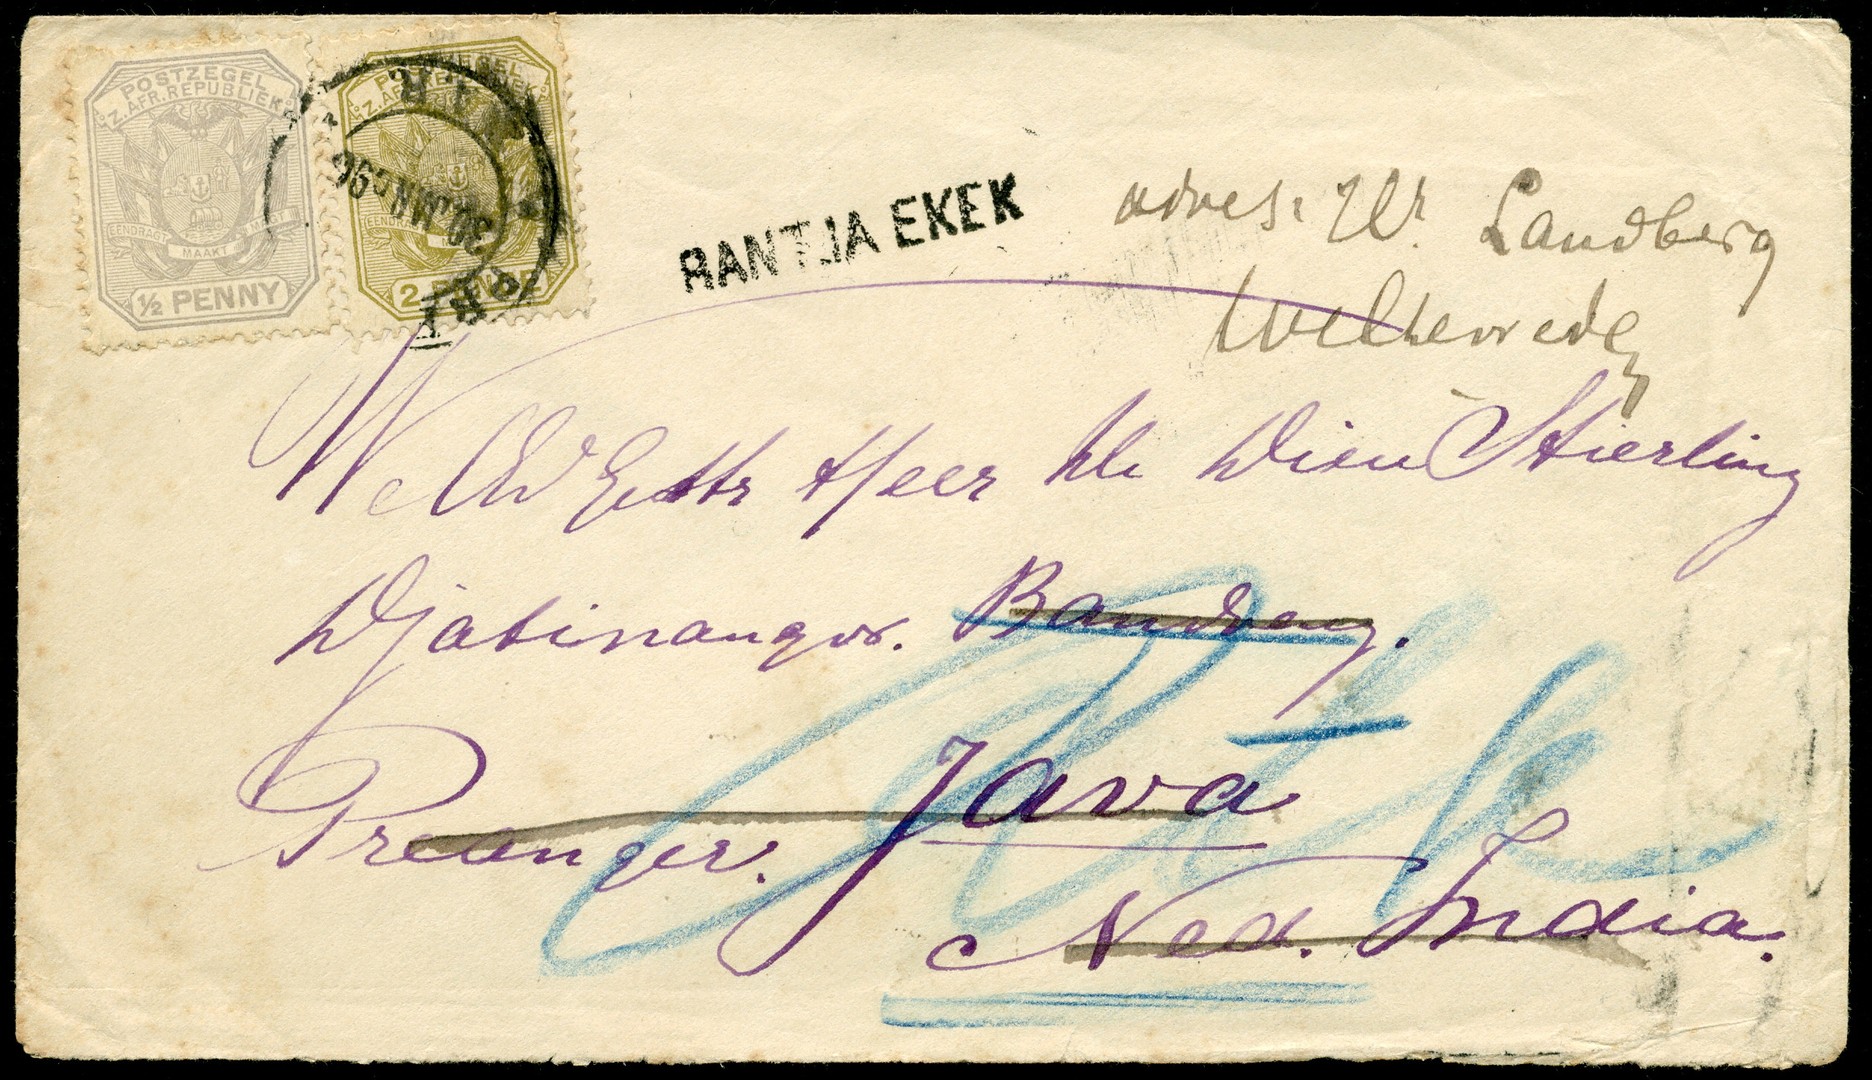 POSTZEGEL
Z. AFR. REPUBLIEK
EENDRAGT MAAKT MAGT
½ PENNY
POSTZEGEL
Z. AFR. REPUBLIEK
EENDRAGT
2 PENCE
Z.A.R.
30 JAN 96
RANTJA EKEK
adres: Mr. Landberg
Weltevreden
WelEdGestr Heer de Dieu Stierling
Djatinangor. Bandoeng.
Preanger. Java
Ned. India.